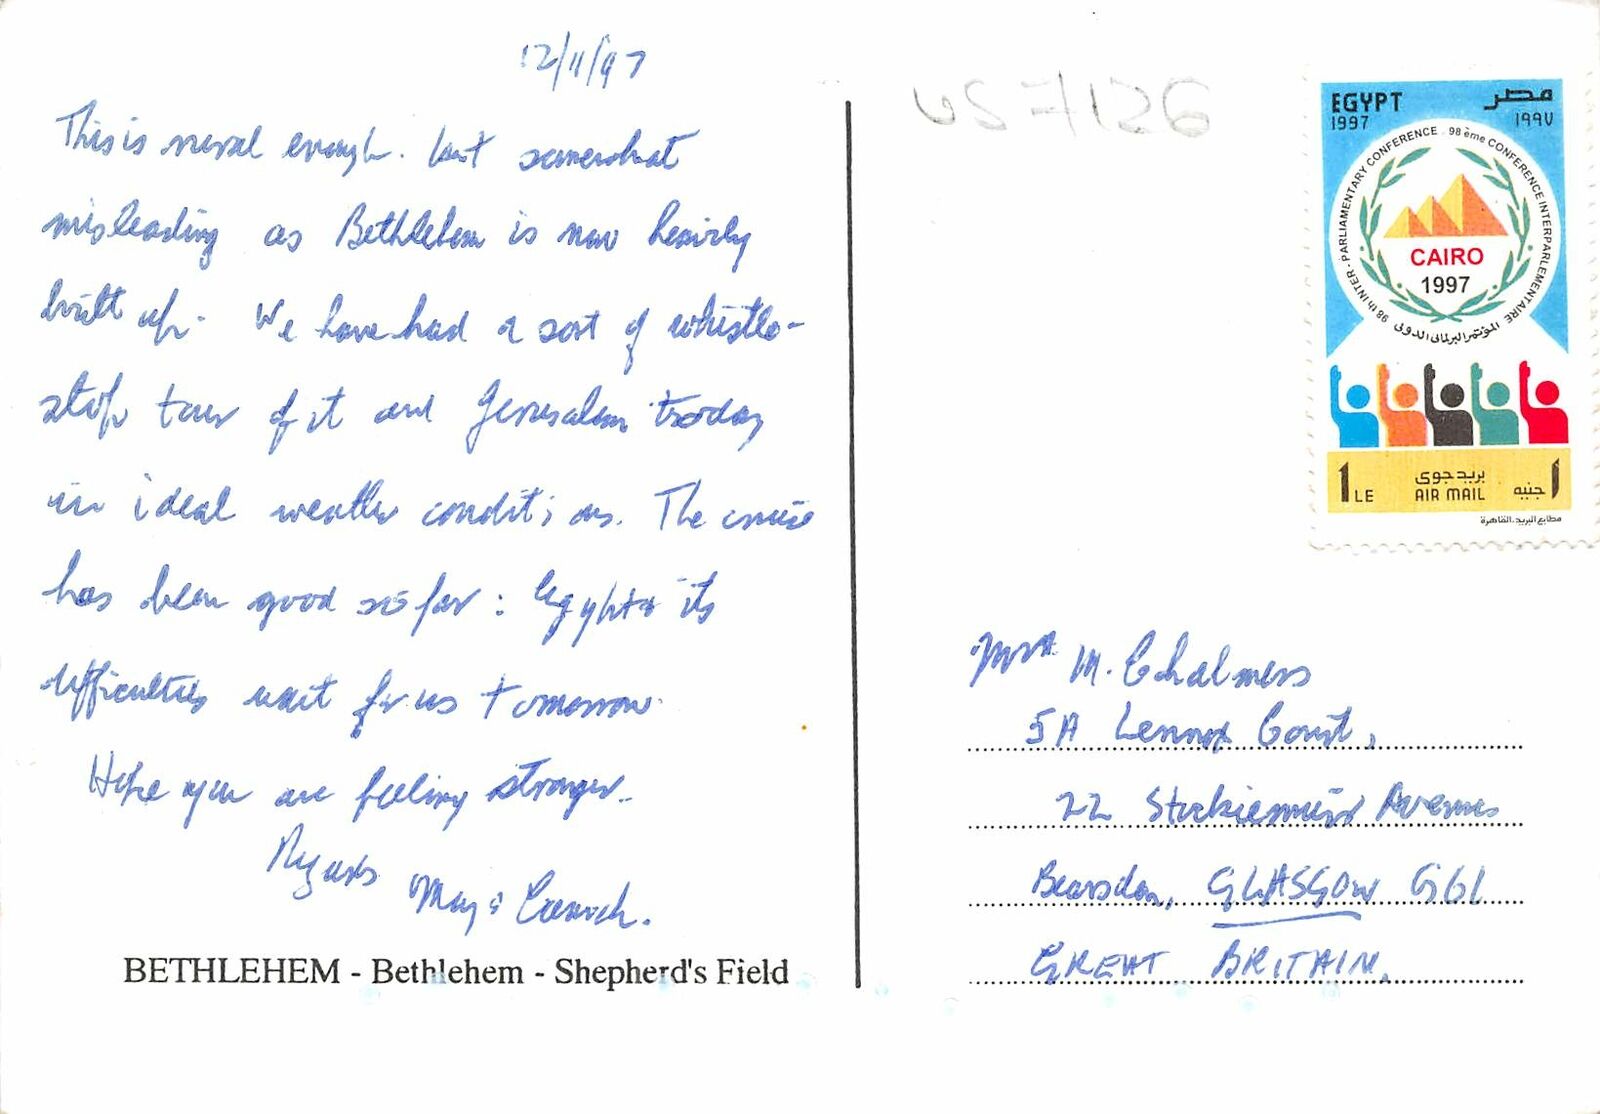 12/11/97
This is rural enough. but somewhat
misleading as Bethlehem is now heavily
built up. We have had a sort of whistle-
stop tour of it and Jerusalem today
in ideal weather conditions. The cruise
has been good so far: Egypt & its
difficulties wait for us tomorrow.
Hope you are feeling stronger.
Regards
May &
BETHLEHEM - Bethlehem - Shepherd's Field
US7126
EGYPT مصر
1997 ١٩٩٧
98th INTER-PARLIAMENTARY CONFERENCE . 98 ème CONFERENCE INTERPARLEMENTAIRE
المؤتمر البرلمانى الدولى
CAIRO
1997
1 LE بريد جوى ١ جنيه
AIR MAIL
مطابع البريد.القاهرة
Mrs M. Chalmers
5A Lennox Court,
22 Avenue
Bearsden, GLASGOW G61
GREAT BRITAIN.